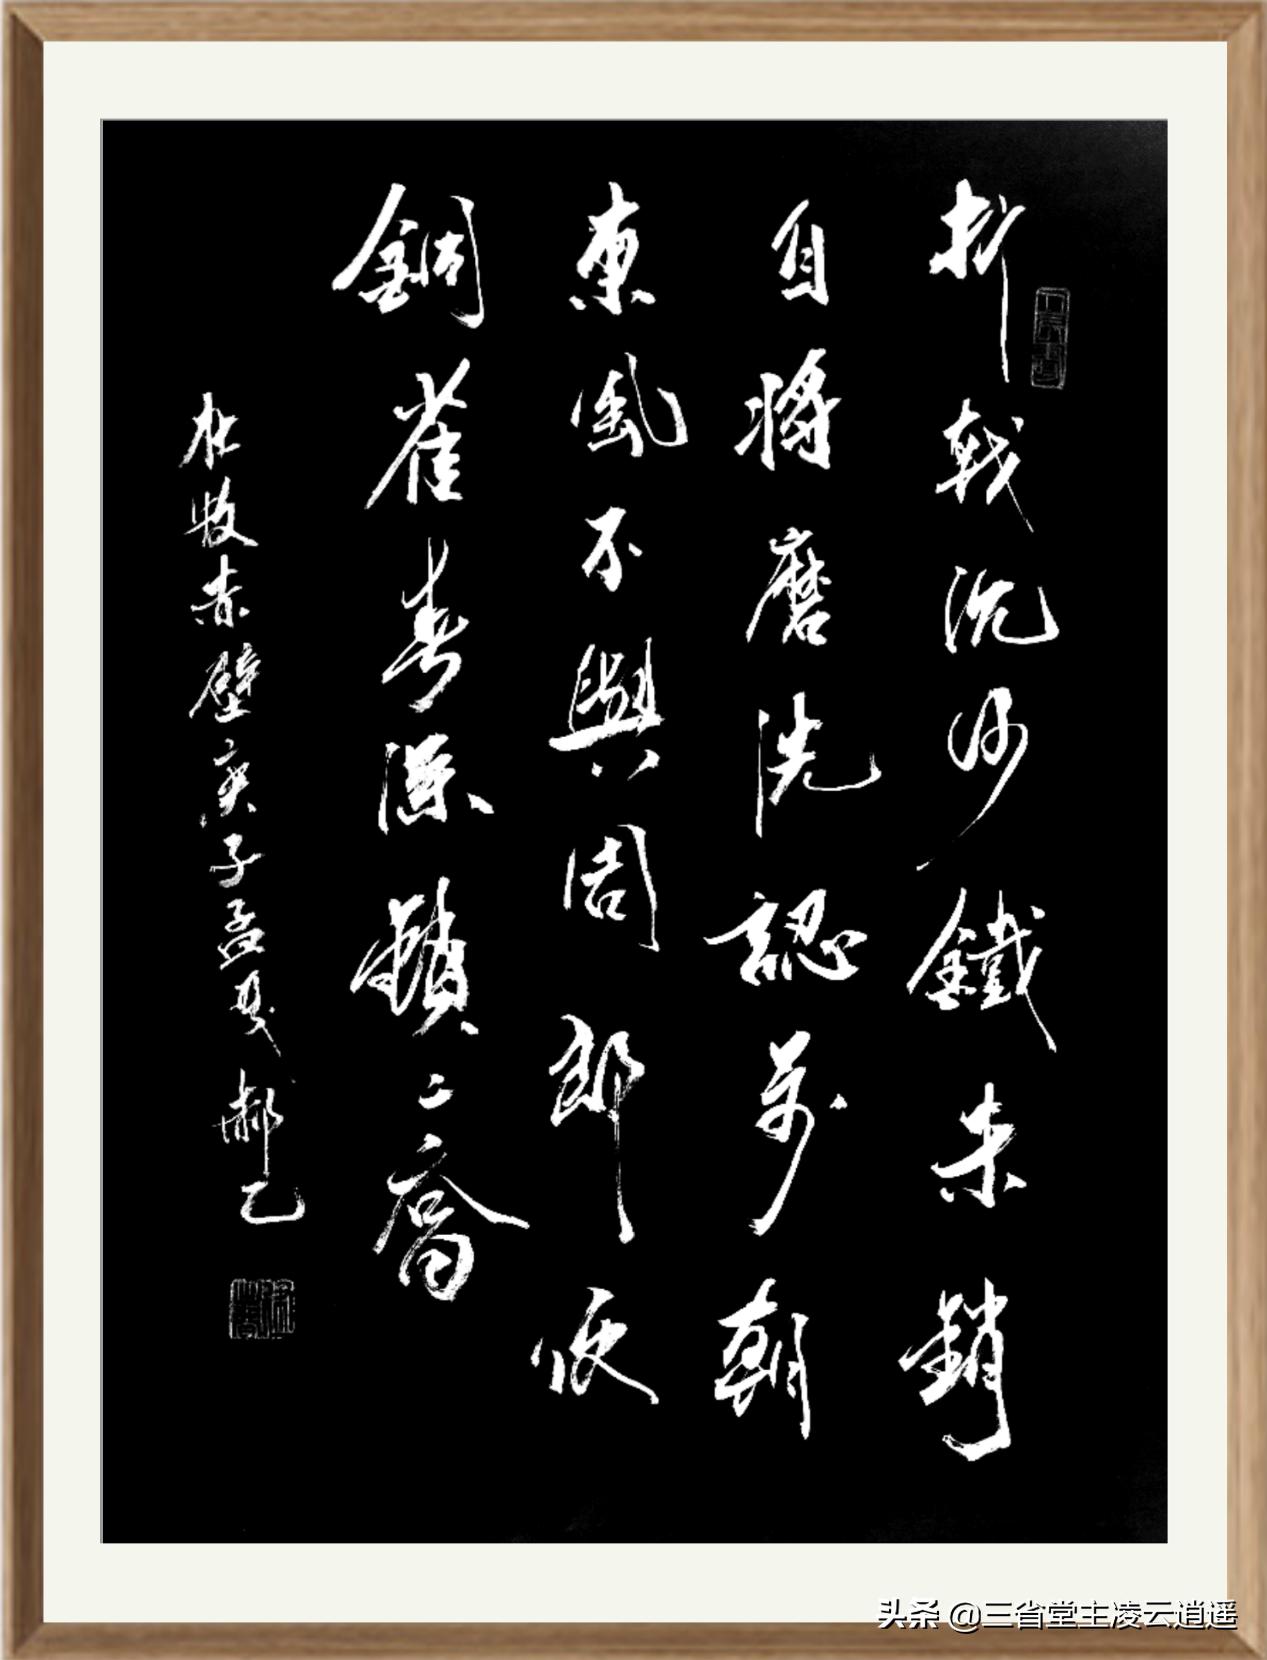 折戟沉沙鐵未銷
自將磨洗認前朝
東風不與周郎便
銅雀春深鎖二喬
杜牧赤壁庚子孟夏郝乙
头条 @三省堂主凌云逍遥